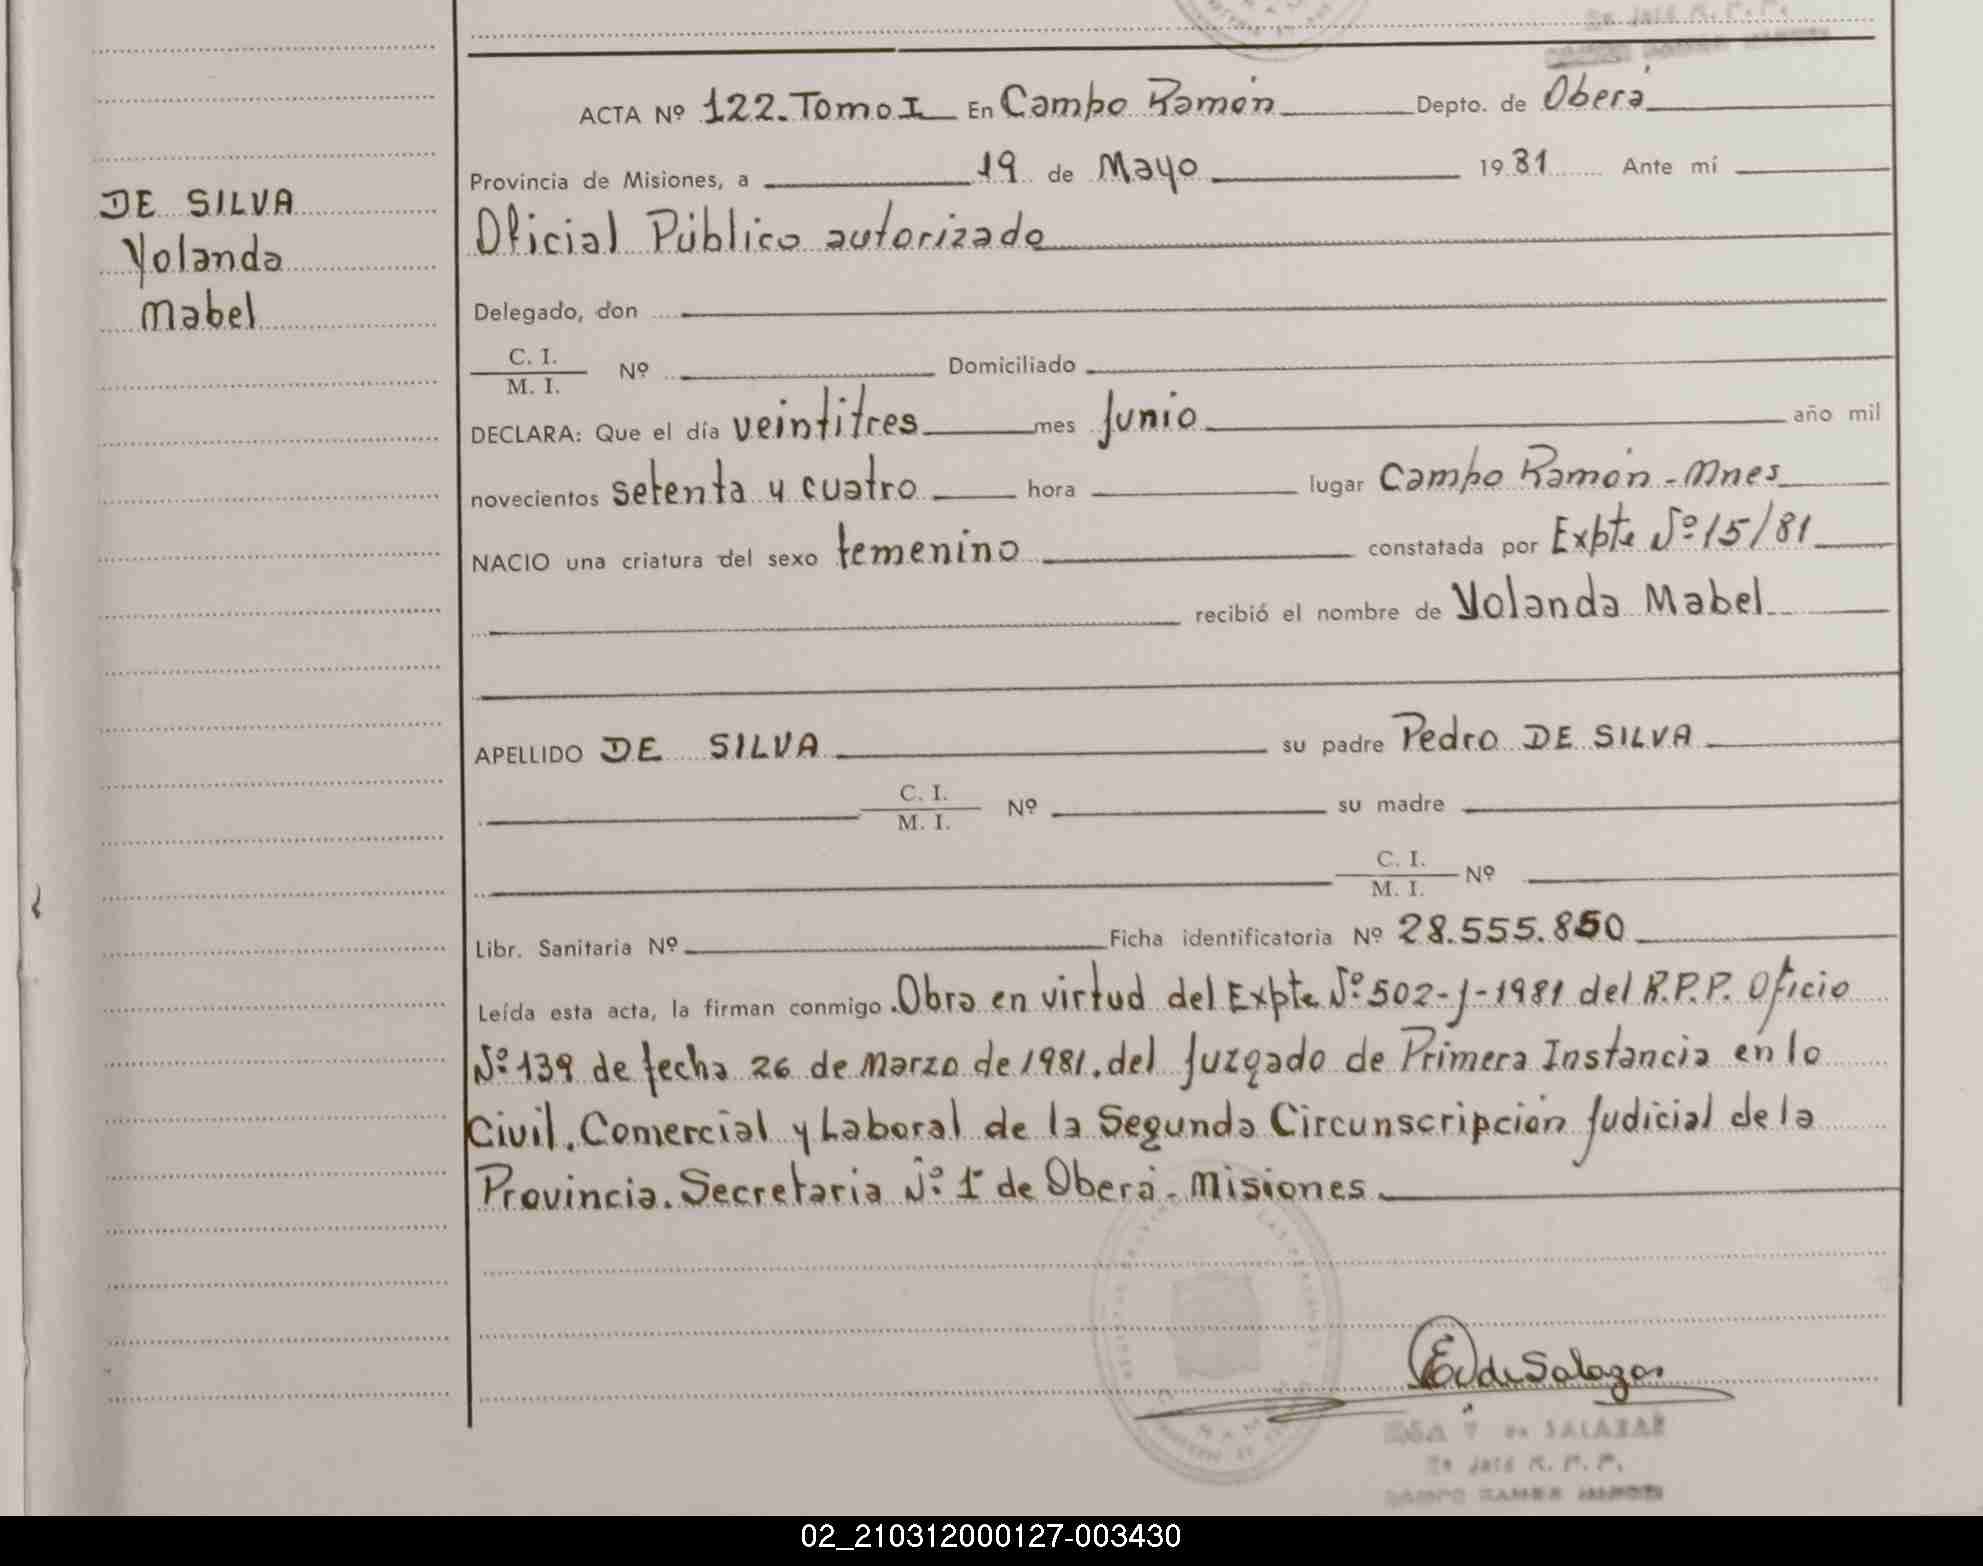 ACTA Nº 122. Tomo I En Campo Ramón Depto. de Oberá
Provincia de Misiones, a 19 de Mayo 1981 Ante mí
DE SILVA
Oficial Público autorizado
Yolanda
Mabel
Delegado, don
C. I.
M. I. Nº Domiciliado
DECLARA: Que el día veintitres mes Junio año mil
novecientos setenta y cuatro hora lugar Campo Ramón - Mnes
NACIO una criatura del sexo femenino constatada por Expte Nº 15/81
recibió el nombre de Yolanda Mabel
APELLIDO DE SILVA su padre Pedro DE SILVA
C. I.
M. I. Nº su madre
C. I.
M. I. Nº
Libr. Sanitaria Nº Ficha identificatoria Nº 28.555.850
Leída esta acta, la firman conmigo. Obra en virtud del Expte Nº 502-J-1981 del R.P.P. Oficio
Nº 139 de fecha 26 de Marzo de 1981. del Juzgado de Primera Instancia en lo
Civil. Comercial y Laboral de la Segunda Circunscripción Judicial de la
Provincia. Secretaria Nº 1 de Oberá - Misiones
E. de Salazar
de SALAZAR
R. P. P.
02_210312000127-003430